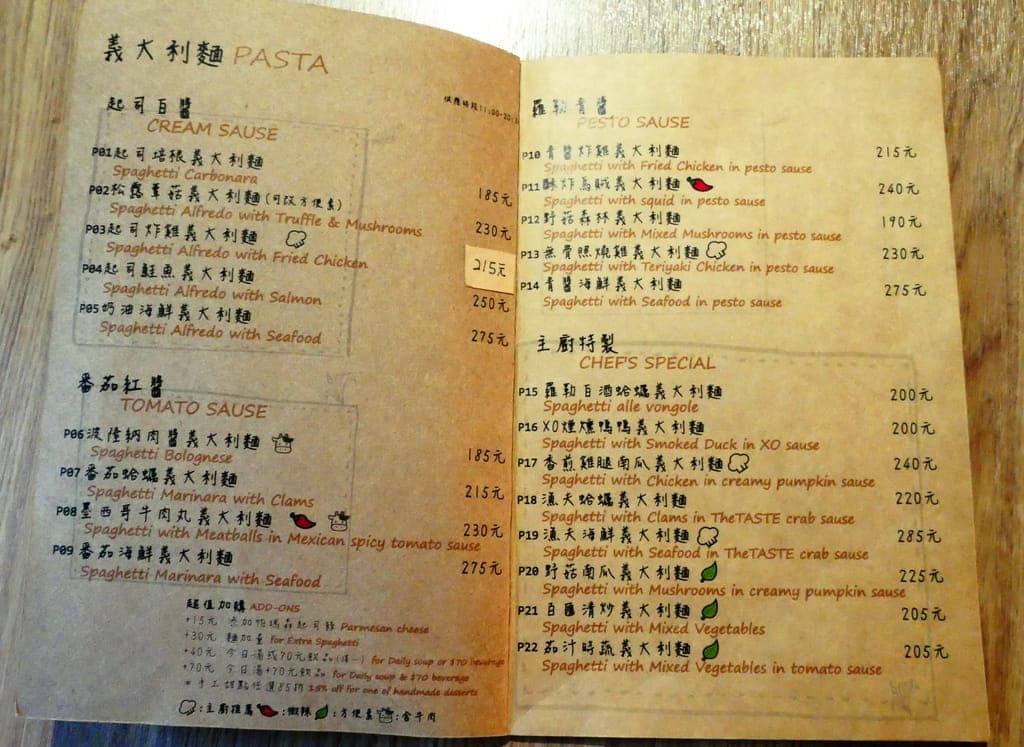 義大利麵 PASTA
起司白醬
CREAM SAUSE
P01起司培根義大利麵 185元
Spaghetti Carbonara
P02松露蕈菇義大利麵(可改方便素) 230元
Spaghetti Alfredo with Truffle & Mushrooms
P03起司炸雞義大利麵 215元
Spaghetti Alfredo with Fried Chicken
P04起司鮭魚義大利麵 250元
Spaghetti Alfredo with Salmon
P05奶油海鮮義大利麵 275元
Spaghetti Alfredo with Seafood
番茄紅醬
TOMATO SAUSE
P06波隆納肉醬義大利麵 185元
Spaghetti Bolognese
P07番茄蛤蠣義大利麵 215元
Spaghetti Marinara with Clams
P08墨西哥牛肉丸義大利麵 230元
Spaghetti with Meatballs in Mexican spicy tomato sause
P09番茄海鮮義大利麵 275元
Spaghetti Marinara with Seafood
超值加購 ADD-ONS
+15元 添加帕瑪森起司粉 Parmesan cheese
+30元 麵加量 for Extra Spaghetti
+40元 今日湯或70元飲品(擇一) for Daily soup or $70 beverage
+70元 今日湯+70元飲品 for Daily soup & $70 beverage
* 手工甜點任選85折 15% off for one of handmade desserts
:主廚推薦 :微辣 :方便素 :含牛肉
供應時段11:00-20:
羅勒青醬
PESTO SAUSE
P10 青醬炸雞義大利麵 215元
Spaghetti with Fried Chicken in pesto sause
P11 酥炸烏賊義大利麵 240元
Spaghetti with squid in pesto sause
P12 野菇森林義大利麵 190元
Spaghetti with Mixed Mushrooms in pesto sause
P13 無骨照燒雞義大利麵 230元
Spaghetti with Teriyaki Chicken in pesto sause
P14 青醬海鮮義大利麵 275元
Spaghetti with Seafood in pesto sause
主廚特製
CHEF'S SPECIAL
P15 羅勒白酒蛤蠣義大利麵 200元
Spaghetti alle vongole
P16 XO煙燻鴨鴨義大利麵 200元
Spaghetti with Smoked Duck in XO sause
P17 香煎雞腿南瓜義大利麵 240元
Spaghetti with Chicken in creamy pumpkin sause
P18 漁夫蛤蠣義大利麵 220元
Spaghetti with Clams in TheTASTE crab sause
P19 漁夫海鮮義大利麵 285元
Spaghetti with Seafood in TheTASTE crab sause
P20 野菇南瓜義大利麵 225元
Spaghetti with Mushrooms in creamy pumpkin sause
P21 百匯清炒義大利麵 205元
Spaghetti with Mixed Vegetables
P22 茄汁時蔬義大利麵 205元
Spaghetti with Mixed Vegetables in tomato sause